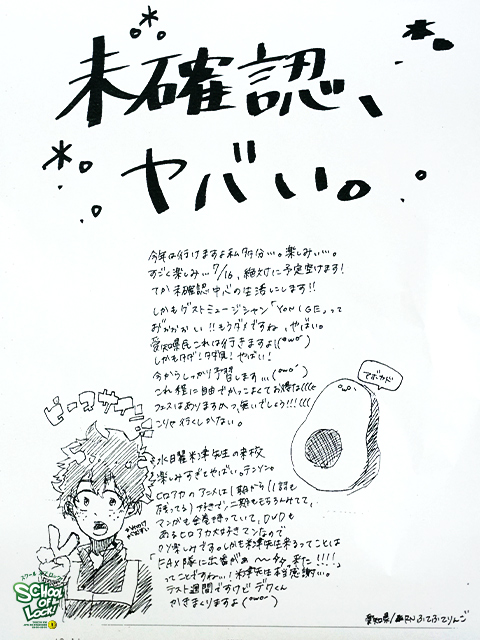 未確認、
ヤバい。
今年は行けますよ私多分…。楽しみぃ…。
すごく楽しみ…7/16、絶対に予定空けます!
てか未確認中心の生活にします!!
しかもゲストミュージシャン「YONIGE」って
もうダメですね、やばい。
愛知県民これは行きますよ!
しかもタダ!タダ!やばい!
今からしっかり予習します…
これ程に自由でかっこよくてお得な
フェスはありますか?無いでしょう!!!
こりゃ行くしかない。
ピースサイン
水曜米津先生の来校
楽しみすぎてやばい。テンソン。
ヒロアカのアニメは1期から
二期ももちろんみてて、
マンガも全巻持っていて、DVDも
あるヒロアカ大好きマンなので
楽しみです。しかも米津先生来るってことは
「FAX隊に出番がぁ〜来た!!!!」
ってことですねぃ!米津先生本当感謝い。
テスト週間ですけどデクくん
かきまくりますよ
SCHOOL OF LOCK!
愛知県/RNふてふてりんご